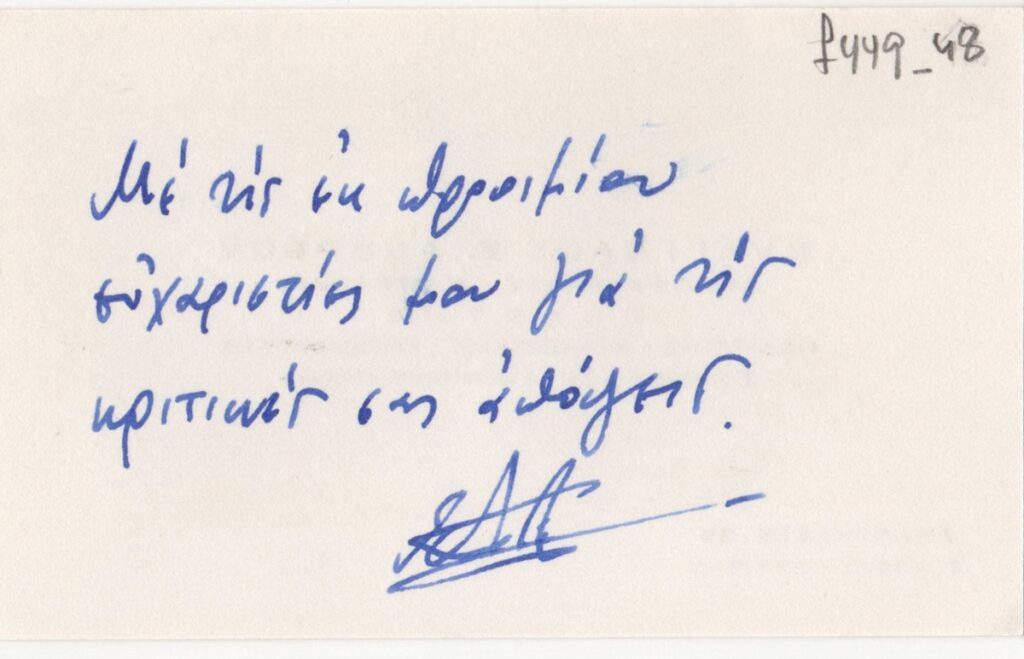 f449_48
Μέ τίς ἐκ προοιμίου
εὐχαριστίες μου γιά τίς
κριτικές σας ἀπόψεις.